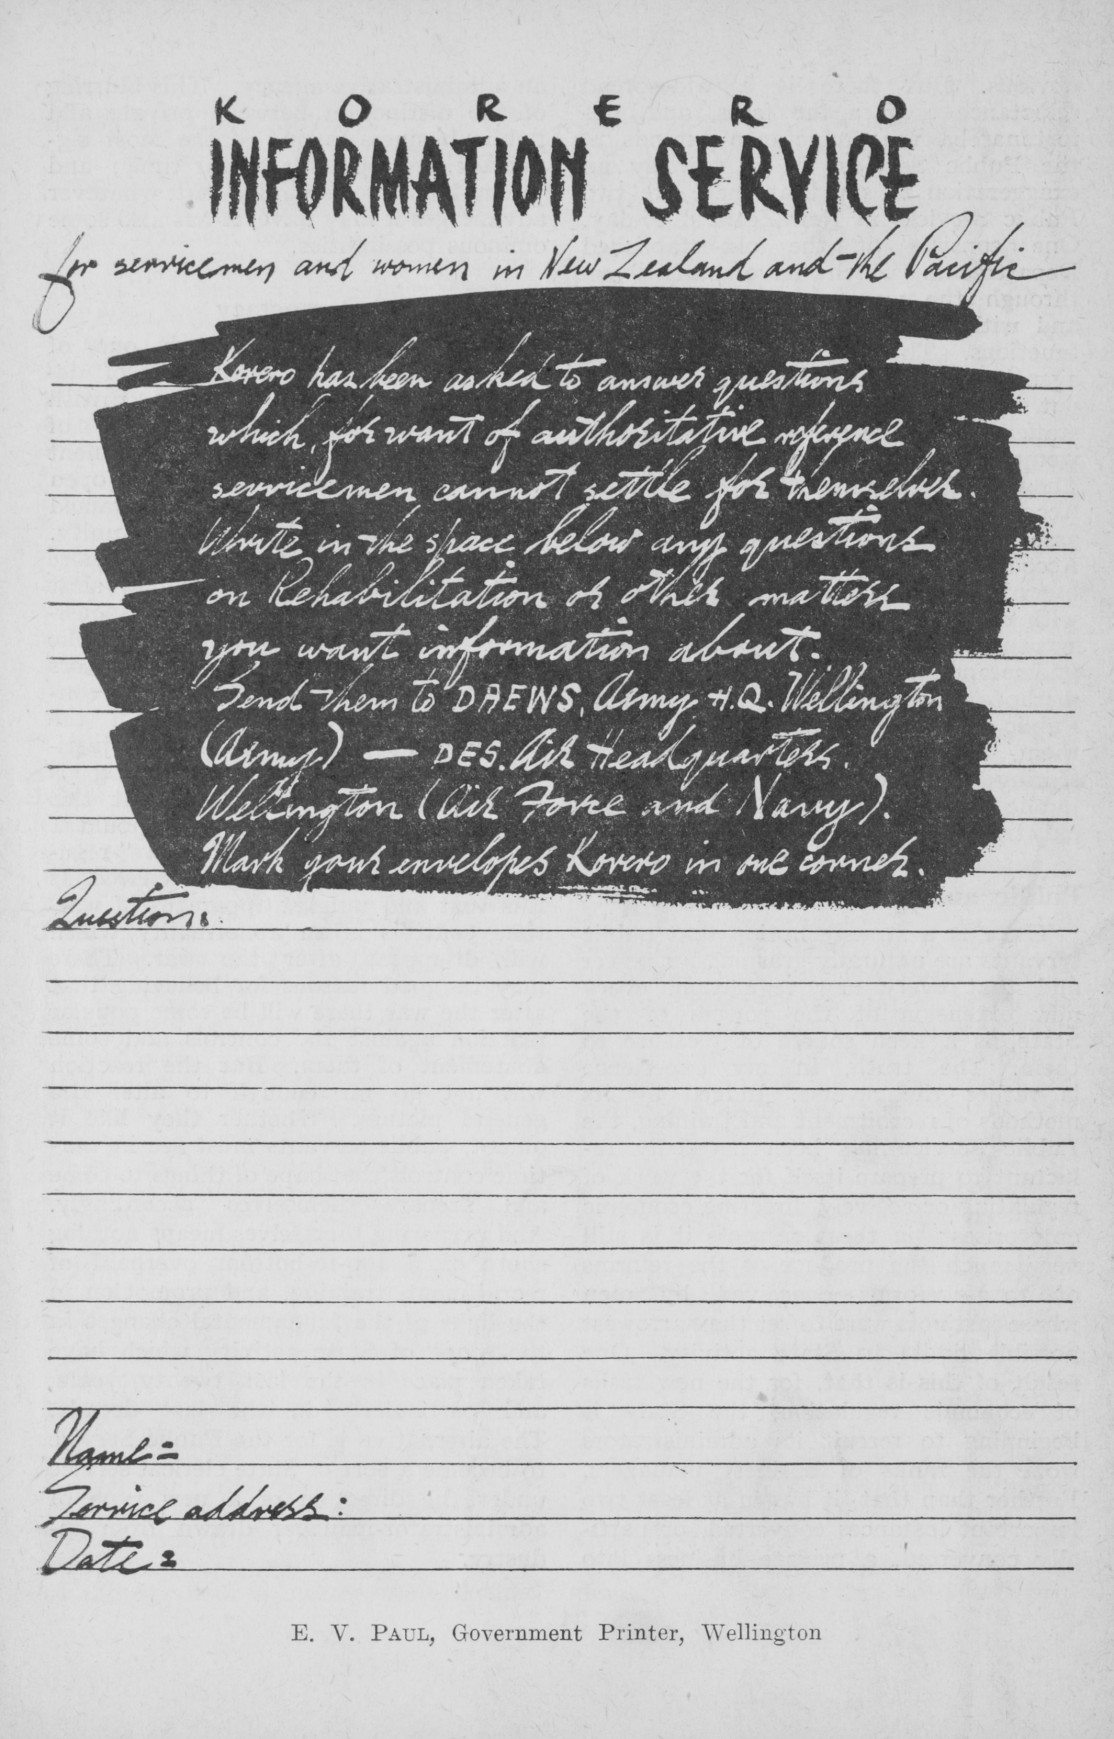 KORERO
INFORMATION SERVICE
for servicemen and women in New Zealand and the Pacific
Korero has been asked to answer questions
which, for want of authoritative reference
servicemen cannot settle for themselves.
Write in the space below any questions
on Rehabilitation or other matters
you want information about.
Send them to DAEWS, Army H.Q. Wellington
(Army) — DES. Air Headquarters.
Wellington (Air Force and Navy).
Mark your envelopes Korero in one corner.
Question:
Name:
Service address:
Date:
E. V. PAUL, Government Printer, Wellington